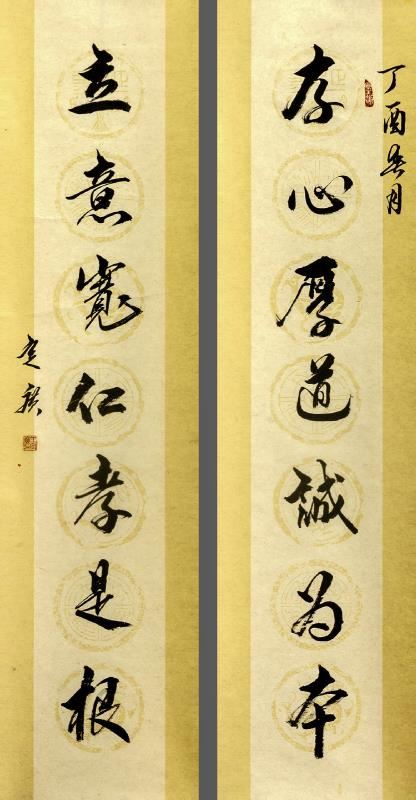 丁酉
月
存心厚道誠为本
立意寬仁孝是根